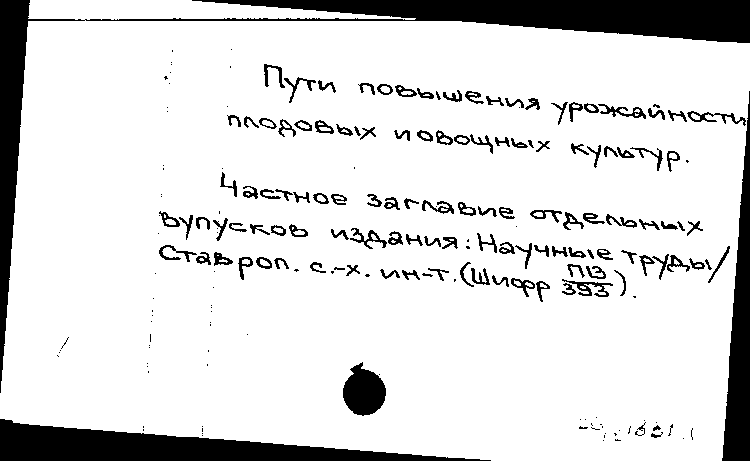 Пути повышения урожайности
плодовых и овощных культур.
Частное заглавие отдельных
выпусков издания: Научные труды/
Ставроп. с.-х. ин-т. (Шифр П13/393).